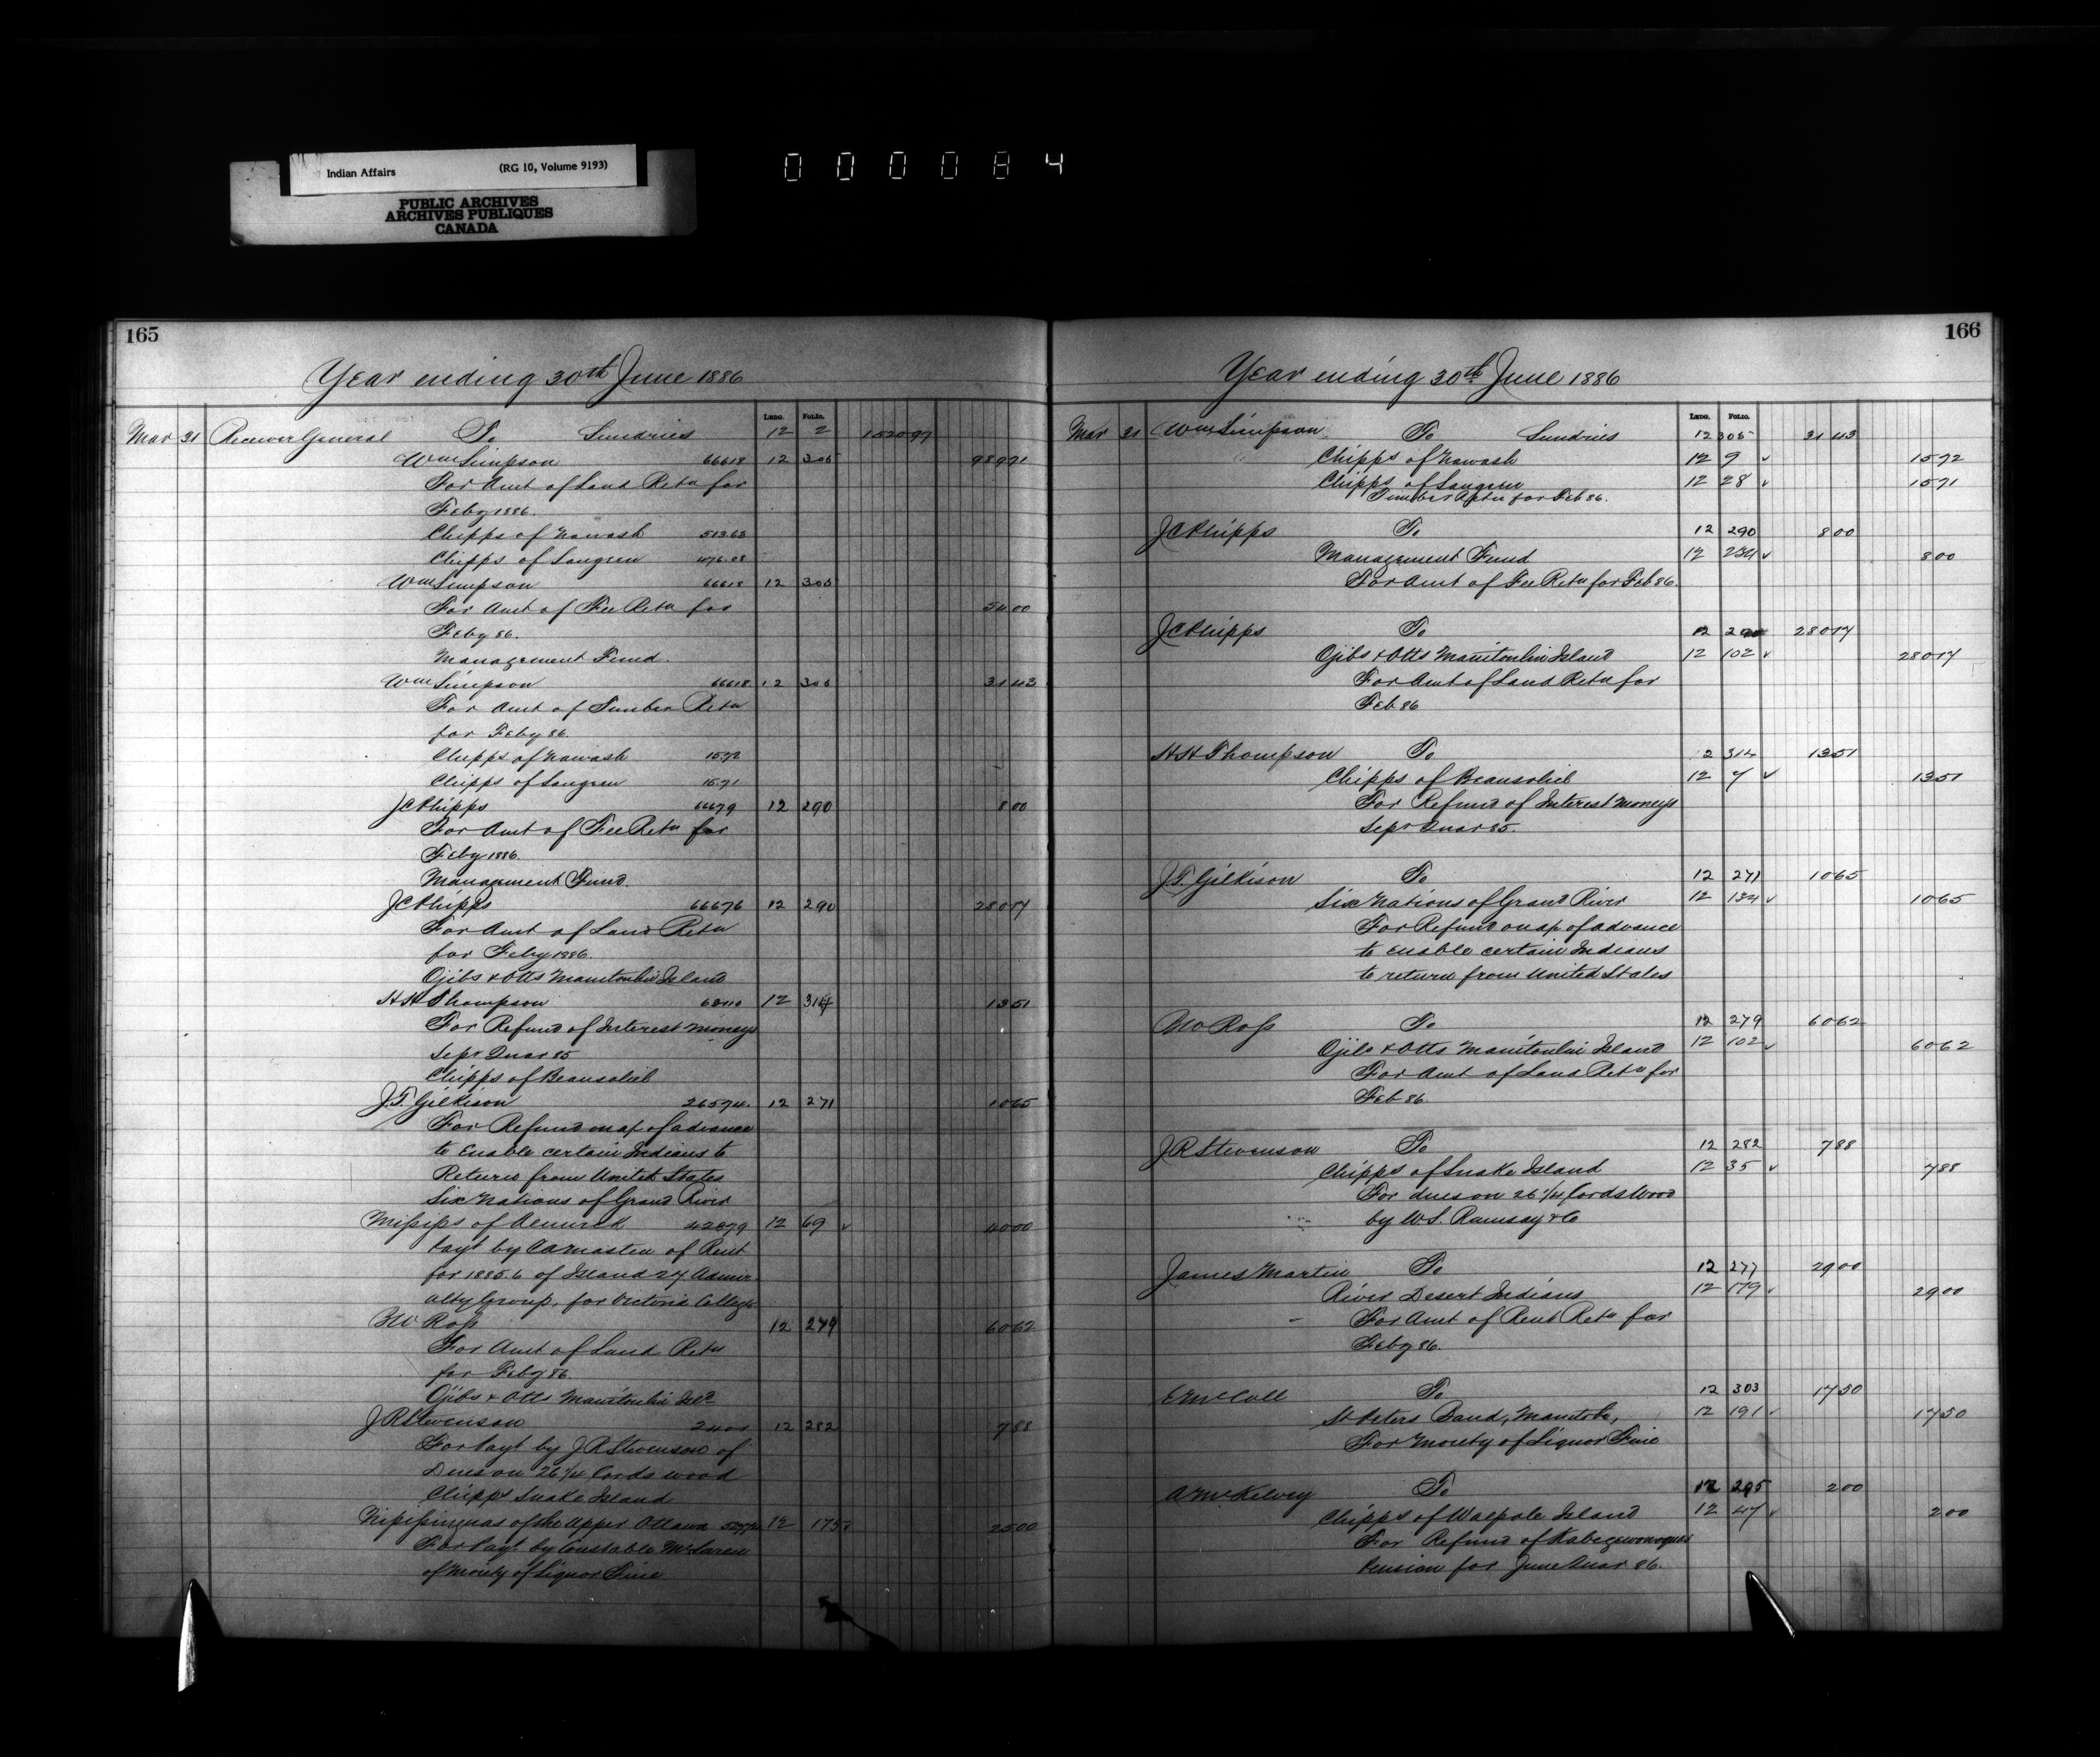 Indian Affairs (RG 10, Volume 9193)
PUBLIC ARCHIVES
ARCHIVES PUBLIQUES
CANADA
000084
165
Year ending 30th June 1886
LEDG. FOLIO.
Mar 31 Receiver General To Sundries 12 2 1520 97
Wm Simpson 66618 12 305 989 71
For Amt of Land Retn for
Feby 1886.
Chipps of Nawash 513.63
Chipps of Saugeen 476.08
Wm Simpson 66618 12 305
For Amt of Fee Retn for 54 00
Feby 86.
Management Fund.
Wm Simpson 66618 12 305 31 43
For Amt of Timber Retn
for Feby 86.
Chipps of Nawash 15.72
Chipps of Saugeen 15.71
JC Phipps 66679 12 290 8 00
For Amt of Fee Retn for
Feby 1886.
Management Fund.
JC Phipps 66676 12 290 280 17
For Amt of Land Retn
for Feby 1886.
Ojibs & Otts Manitoulin Island
HH Thompson 12 314 13 51
For Refund of Interest Moneys
Sepr Quar 85
Chipps of Beausoliel
J.T. Gilkison 26574. 12 271 10 65
For Refund on a/c of advance
to Enable certain Indians to
Return from United States
Six Nations of Grand River
Missips of Alnwick 42879 12 69 40 00
Payt by of Rent
for 1885.6 of Island 27 Admir
alty Group, for Victoria College
Ross 12 279 60 62
For Amt of Land Retn
for Feby 86.
Ojibs & Otts Manitoulin Isld
J R Stevenson 12 282 7 88
For Payt by J R Stevenson of
Dues on 26 1/4 Cords wood
Chipps Snake Island
Nipissinguas of the Upper Ottawa 12 175 25 00
For Payt by Constable McLaren
of Moiety of Liquor Fine
166
Year ending 30th June 1886
LEDG. FOLIO.
Mar 31 Wm Simpson To Sundries 12 305 31 43
Chipps of Nawash 12 9 15 72
Chipps of Saugeen 12 28 15 71
Timber for Feb 86.
JC Phipps To 12 290 8 00
Management Fund 12 234 8 00
For Amt of Fee Retn for Feb 86.
JC Phipps To 12 290 280 17
Ojibs & Otts Manitoulin Island 12 102 280 17
For Amt of Land Retn for
Feb 86
HH Thompson To 12 314 13 51
Chipps of Beausoliel 12 7 13 51
For Refund of Interest Moneys
Sepr Quar 85.
J.T. Gilkison To 12 271 10 65
Six Nations of Grand River 12 134 10 65
For Refund on a/c of advance
to enable certain Indians
to return from United States
Ross To 12 279 60 62
Ojibs & Otts Manitoulin Island 12 102 60 62
For Amt of Land Retn for
Feb 86.
J R Stevenson To 12 282 7 88
Chipps of Snake Island 12 35 7 88
For dues on 26 1/4 Cords Wood
by W.S. Ramsay & Co
James Martin To 12 277 29 00
River Desert Indians 12 179 29 00
For Amt of Rent Retn for
Feby 86.
E McColl To 12 303 17 50
St Peters Band, Manitoba, 12 191 17 50
For Moiety of Liquor Fine
A McKelvey To 12 295 2 00
Chipps of Walpole Island 12 47 2 00
For Refund of
Pension for June Quar 86.